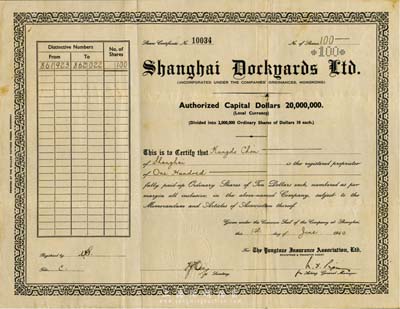 Share Certificate No 10034
No. of Shares 100
*100*
Shanghai Dockyards Ltd.
(INCORPORATED UNDER THE COMPANIES' ORDINANCES, HONGKONG)
Authorized Capital Dollars 20,000,000.
(Local Currency)
(Divided into 2,000,000 Ordinary Shares of Dollars 10 each.)
Distinctive Numbers
No. of Shares
From
To
100
This is to Certify that
of Shanghai is the registered proprietor
of One Hundred
fully paid-up Ordinary Shares of Ten Dollars each, numbered as per
margin all inclusive in the above-named Company, subject to the
Memorandum and Articles of Association thereof.
Given under the Common Seal of the Company at Shanghai,
this day of June 1940
For The Yangtsze Insurance Association, Ltd.
Registered by
Folio C.
Secretary
for Acting General Manager